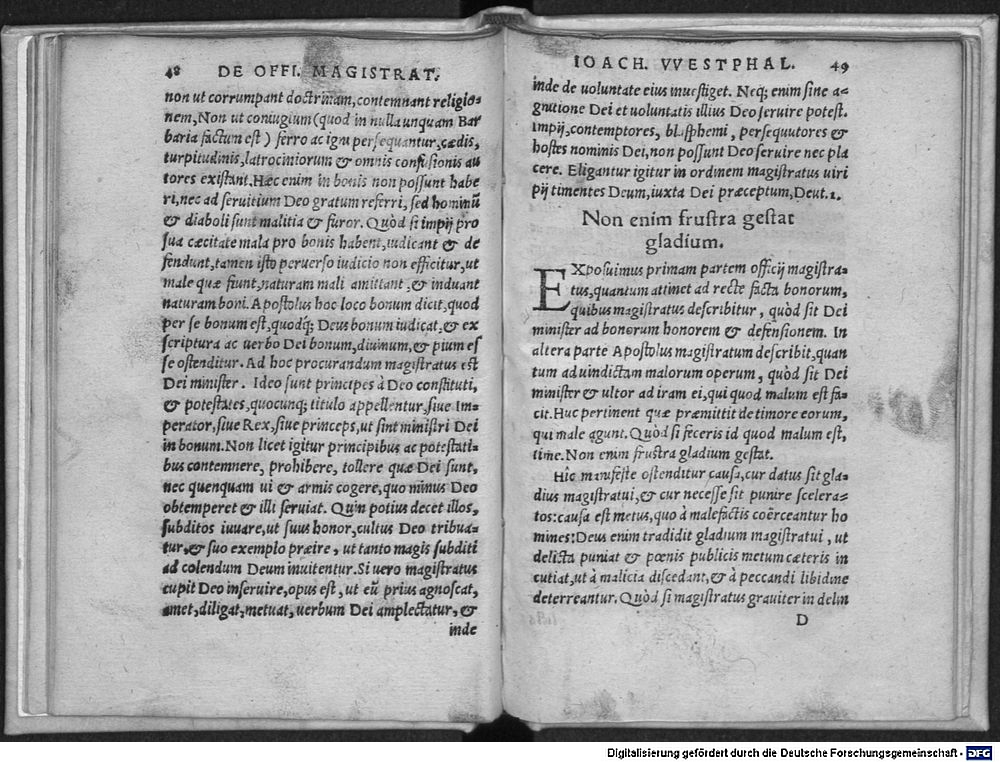 48 DE OFFI. MAGISTRAT.
non ut corrumpant doctrinam, contemnant religio-
nem, Non ut coniugium (quod in nulla unquam Bar
baria factum est) ferro ac igni persequantur, cædis,
turpitudinis, latrociniorum & omnis confusionis au
tores existant. Hæc enim in bonis non possunt habe
ri, nec ad seruitium Deo gratum referri, sed hominū
& diaboli sunt malitia & furor. Quòd si impij pro
sua cæcitate mala pro bonis habent, iudicant & de
fendunt, tamen isto peruerso iudicio non efficitur, ut
male quæ fiunt, naturam mali amittant, & induant
naturam boni. Apostolus hoc loco bonum dicit, quod
per se bonum est, quodq; Deus bonum iudicat, & ex
scriptura ac uerbo Dei bonum, diuinum, & pium es
se ostenditur. Ad hoc procurandum magistratus est
Dei minister. Ideo sunt principes à Deo constituti,
& potestates, quocunq; titulo appellentur, siue Im-
perator, siue Rex, siue princeps, ut sint ministri Dei
in bonum. Non licet igitur principibus ac potestati-
bus contemnere, prohibere, tollere quæ Dei sunt,
nec quenquam ui & armis cogere, quo minus Deo
obtemperet & illi seruiat. Quin potius decet illos,
subditos iuuare, ut suus honor, cultus Deo tribua-
tur, & suo exemplo præire, ut tanto magis subditi
ad colendum Deum inuitentur. Si uero magistratus
cupit Deo inseruire, opus est, ut eū prius agnoscat,
amet, diligat, metuat, uerbum Dei amplectatur, &
inde
IOACH. VVESTPHAL. 49
inde de uoluntate eius inuestiget. Neq; enim sine a-
gnitione Dei et uoluntatis illius Deo seruire potest.
Impij, contemptores, blasphemi, persequutores &
hostes nominis Dei, non possunt Deo seruire nec pla
cere. Eligantur igitur in ordinem magistratus uiri
pij timentes Deum, iuxta Dei præceptum, Deut. 1.
Non enim frustra gestat
gladium.
EXposuimus primam partem officij magistra-
tus, quantum attinet ad recte facta bonorum,
quibus magistratus describitur, quòd sit Dei
minister ad bonorum honorem & defensionem. In
altera parte Apostolus magistratum describit, quan
tum ad uindictam malorum operum, quòd sit Dei
minister & ultor ad iram ei, qui quod malum est fa-
cit. Huc pertinent quæ præmittit de timore eorum,
qui male agunt. Quòd si feceris id quod malum est,
time. Non enim frustra gladium gestat.
Hîc manifeste ostenditur causa, cur datus sit gla-
dius magistratui, & cur necesse sit punire scelera-
tos: causa est metus, quo à malefactis coërceantur ho
mines: Deus enim tradidit gladium magistratui, ut
delicta puniat & pœnis publicis metum cæteris in
cutiat, ut à malicia discedant, & à peccandi libidine
deterreantur. Quòd si magistratus grauiter in delin
D
Digitalisierung gefördert durch die Deutsche Forschungsgemeinschaft - DFG